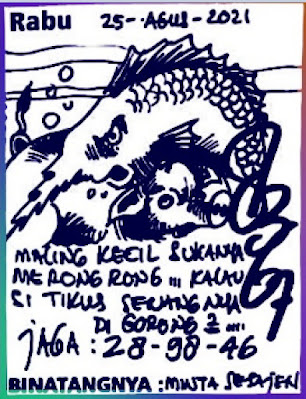 Rabu 25-AGUS-2021
MALING KECIL SUKANYA
MERONG RONG ... KALAU
SI TIKUS SENANGNYA
DI GORONG 2 ....
JAGA : 28-98-46
BINATANGNYA : MINTA